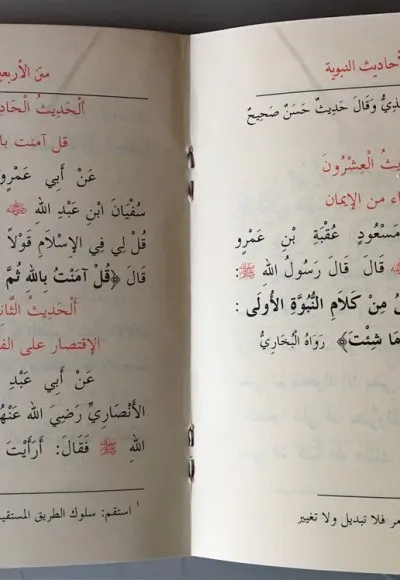 لأحاديث النبوية
وَقَالَ حَدِيثٌ حَسَنٌ صَحِيحٌ
الْعِشْرُونَ
من الإيمان
مَسْعُودٍ عُقْبَةَ بْنِ عَمْرٍو
قَالَ قَالَ رَسُولُ اللهِ ﷺ :
مِنْ كَلَامِ النُّبُوَّةِ الأُولَى :
مَا شِئْتَ﴾ رَوَاهُ الْبُخَارِيُّ
فلا تبديل ولا تغيير
متن الأربعيـ
اَلْحَدِيثُ الْحَادِ
قل آمنت با
عَنْ أَبِي عَمْرٍو
سُفْيَانَ ابْنِ عَبْدِ اللهِ
قُلْ لِي فِي الْإِسْلَامِ قَوْلًا
قَالَ ﴿قُلْ آمَنْتُ بِاللهِ ثُمَّ
اَلْحَدِيثُ الثَّانِـ
الإقتصار على الفـ
عَنْ أَبِي عَبْدِ
الْأَنْصَارِيِّ رَضِيَ اللهُ عَنْهُـ
اللهِ ﷺ فَقَالَ: أَرَأَيْتَ
١ استقم: سلوك الطريق المستقيـ